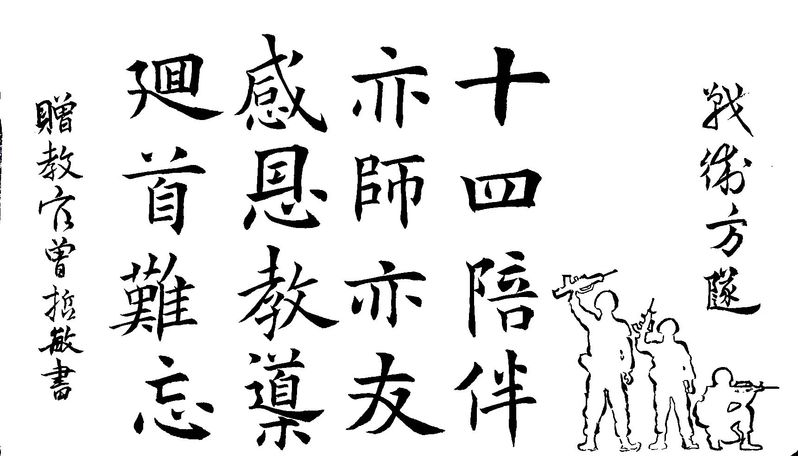 戰術方隊
十四陪伴
亦師亦友
感恩教導
廻首難忘
贈教官曾哲敏書